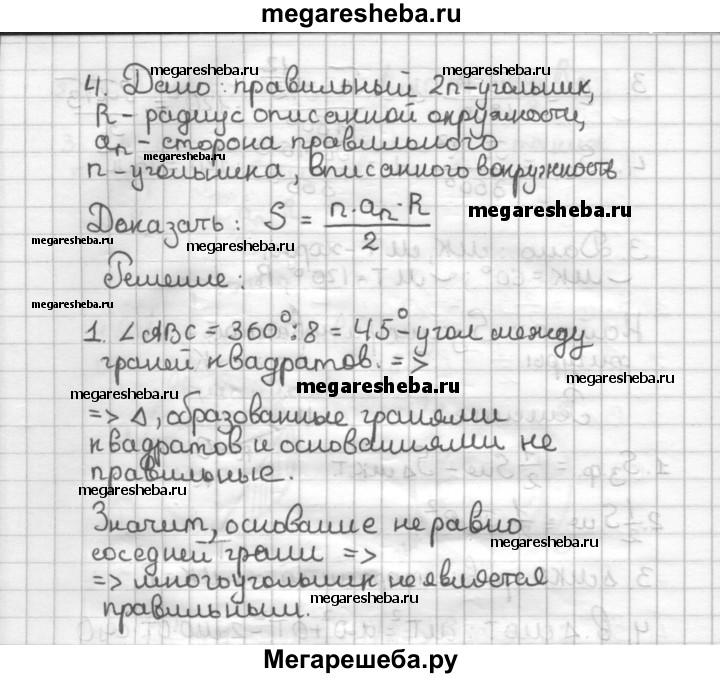 megaresheba.ru
megaresheba.ru
4. Дано: правильный 2n-угольник,
megaresheba.ru
R - радиус описанной окружности,
megaresheba.ru
aₙ - сторона правильного
megaresheba.ru
n-угольника, вписанного в окружность
Доказать: S = n·aₙ·R / 2
megaresheba.ru
megaresheba.ru
megaresheba.ru
Решение:
megaresheba.ru
1. ∠ABC = 360°:8 = 45° - угол между
граней квадратов. =>
megaresheba.ru
megaresheba.ru
=> Δ, образованные гранями
квадратов и основаниями не
правильные.
megaresheba.ru
Значит, основание не равно
megaresheba.ru
соседней грани =>
=> многоугольник не является
megaresheba.ru
правильным.
Мегарешеба.ру